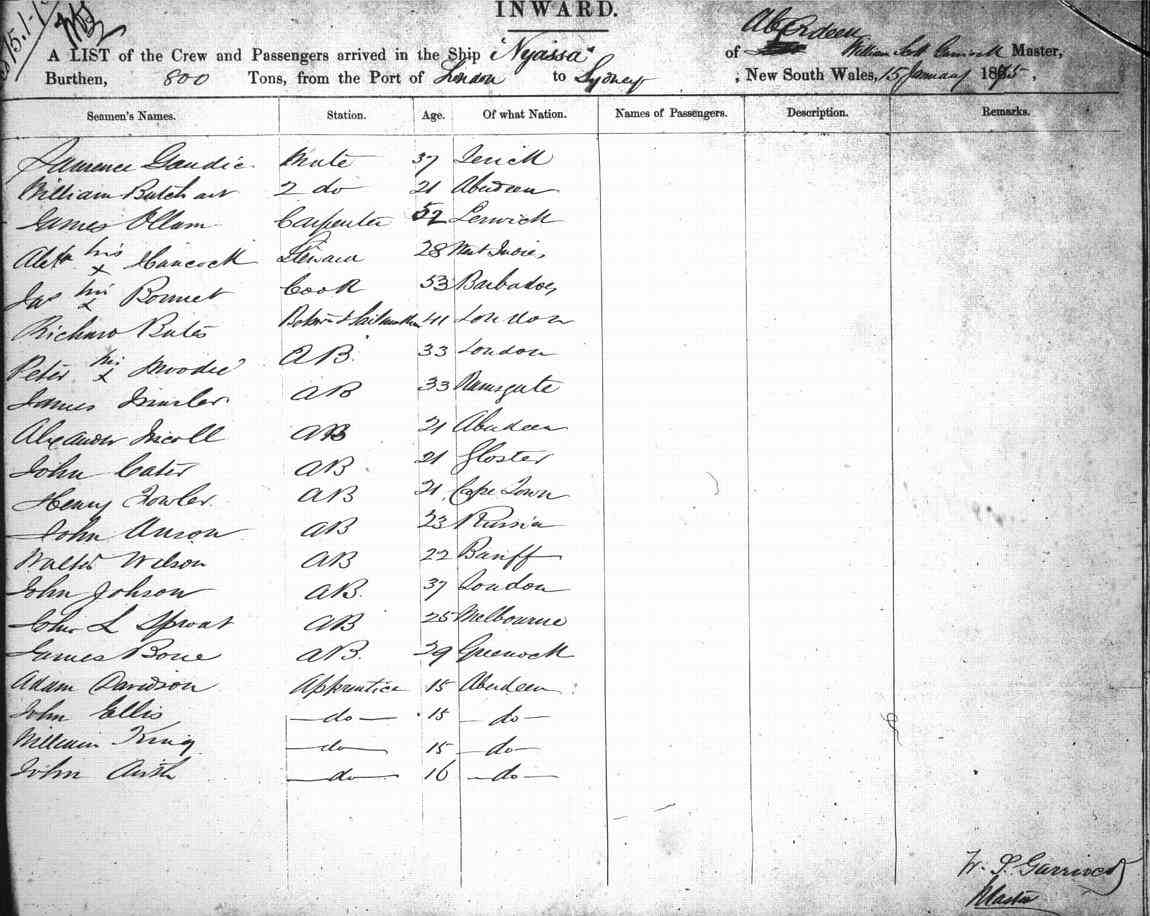 15.1.
INWARD.
A LIST of the Crew and Passengers arrived in the Ship "Nyassa" of Aberdeen William Master,
Burthen, 800 Tons, from the Port of London to Sydney, New South Wales, 15 January 1875,
Seamen's Names. Station. Age. Of what Nation. Names of Passengers. Description. Remarks.
Laurence Goudie Mate 37
William Butchart 2 do 21 Aberdeen
James Ollam Carpenter 52 Lerwick
his x Hancock Steward 28 West Indies
Jas his x Bonnet Cook 53 Barbadoes
Richard Bates 41 London
Peter his x Moodie AB 33 London
James AB 33 Ramsgate
Alexander Nicoll AB 21 Aberdeen
John Cater AB 21 Gloster
Henry Fowler AB 21 Cape Town
John Anson AB 23 Russia
Walter Wilson AB 22 Banff
John Johson AB. 37 London
John L Sprout AB 25 Melbourne
James Bone AB. 29 Greenock
Adam Davidson Apprentice 15 Aberdeen
John Ellis do 15 do
William King do 15 do
John Airth do 16 do
W. S. Garriock
Master